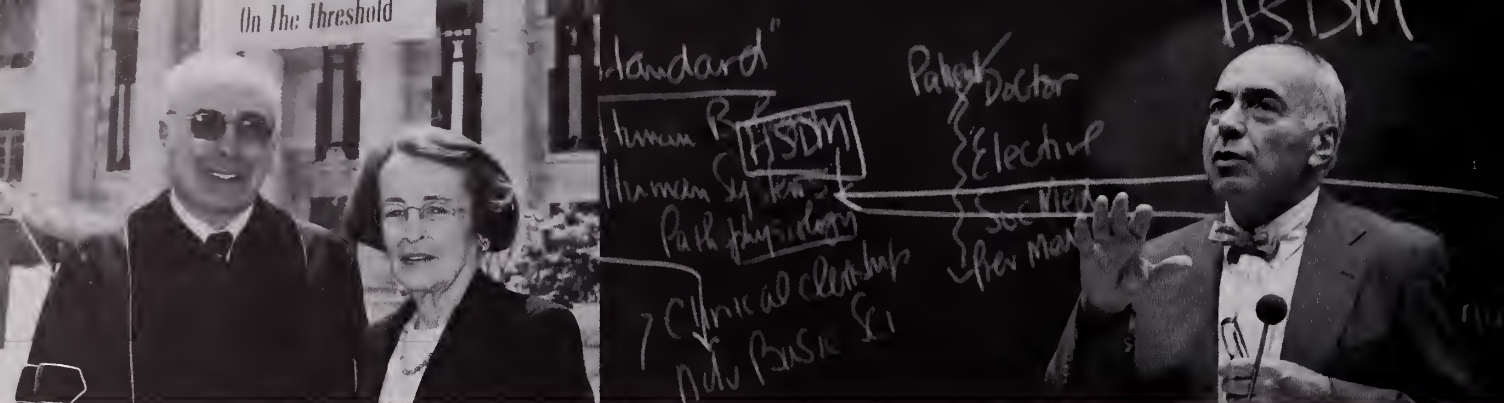 On The Threshold
HSDM
tandard"
Human
HSDM
Human Systems
Pathphysiology
Clinical clerkships
Adv Basic Sci
Patient/Doctor
Elective
Soc Med
Prev Med